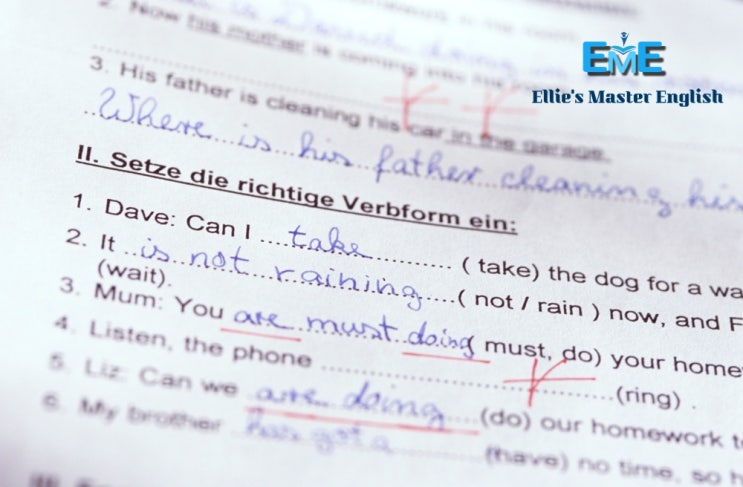 2. Now his mother is coming into
EME
Ellie's Master English
3. His father is cleaning his car in the garage.
Where is his father cleaning his
II. Setze die richtige Verbform ein:
1. Dave: Can I take ( take) the dog for a wa
2. It is not raining ( not / rain ) now, and F
(wait).
3. Mum: You are must doing ( must, do) your home
4. Listen, the phone (ring) .
5. Liz: Can we are doing (do) our homework t
6. My brother has got a (have) no time, so h